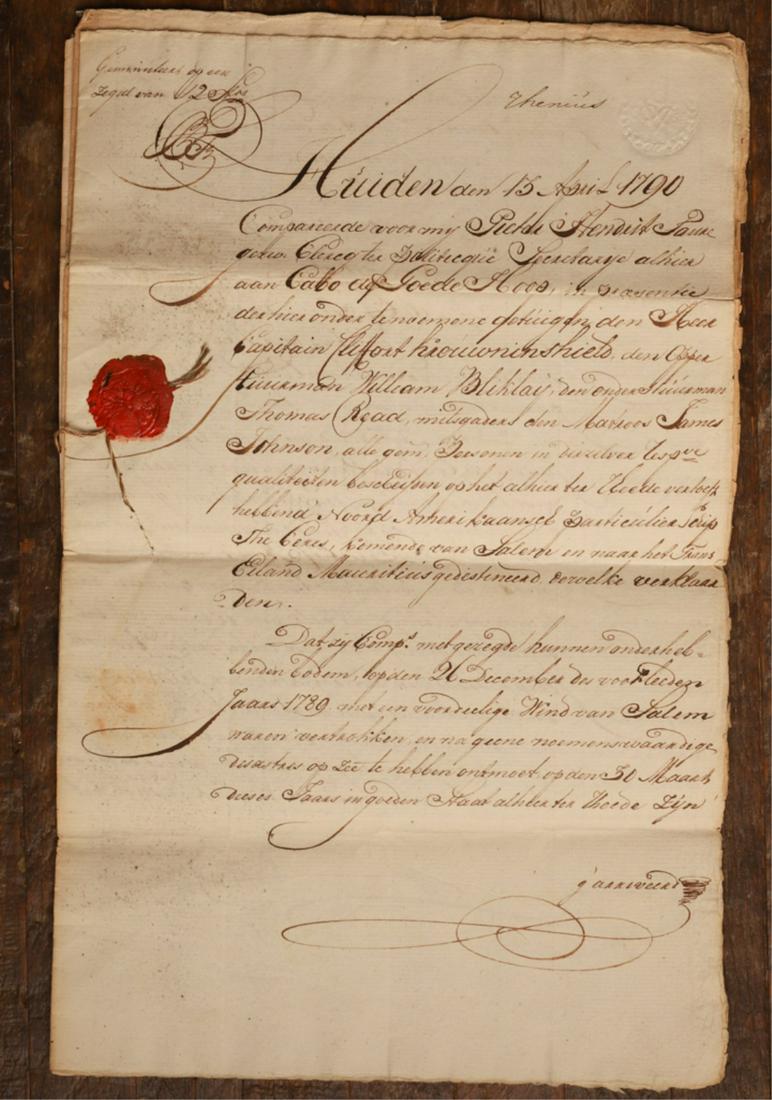 Geminuteert op een
Zegel van 12 Stvs
Thenius
Huiden den 15 April 1790
Compareerde voor mij Pieter Hendrik Faure
gesw. Clercq ter Politicque Secretarije alhier
aan Cabo de Goede Hoop, in praesentie
der hier onder tenoemene getuigen, den Heer
Capitain Cliffort Krouwninshield, den Opper
stuurman William Bliklaij, den onderstuurman
Thomas Read, mitsgaders den Matroos James
Johnson, alle gem. Persoonen in dezelver resp.ve
qualiteiten bescheiden op het alhier ter Rheede verloef
hebbend Noord Amerikaansch Particulier Schip
The Ceres, komende van Salem en naar het Frans
Eiland Mauritius gedestineerd, dewelke verklaar
den.
Dat zij Comp.n met gezegde hunnen onderheb-
benden bodem, op den 26 December des voorleeden
Jaars 1789 met een voordeelige Wind van Salem
waren vertrokken, en na geene noemenswaardige
desastres op Zee te hebben ontmoet, op den 30 Maart
deses Jaars in goeden Staat alhier ter Rheede zijn
g'arriveerd